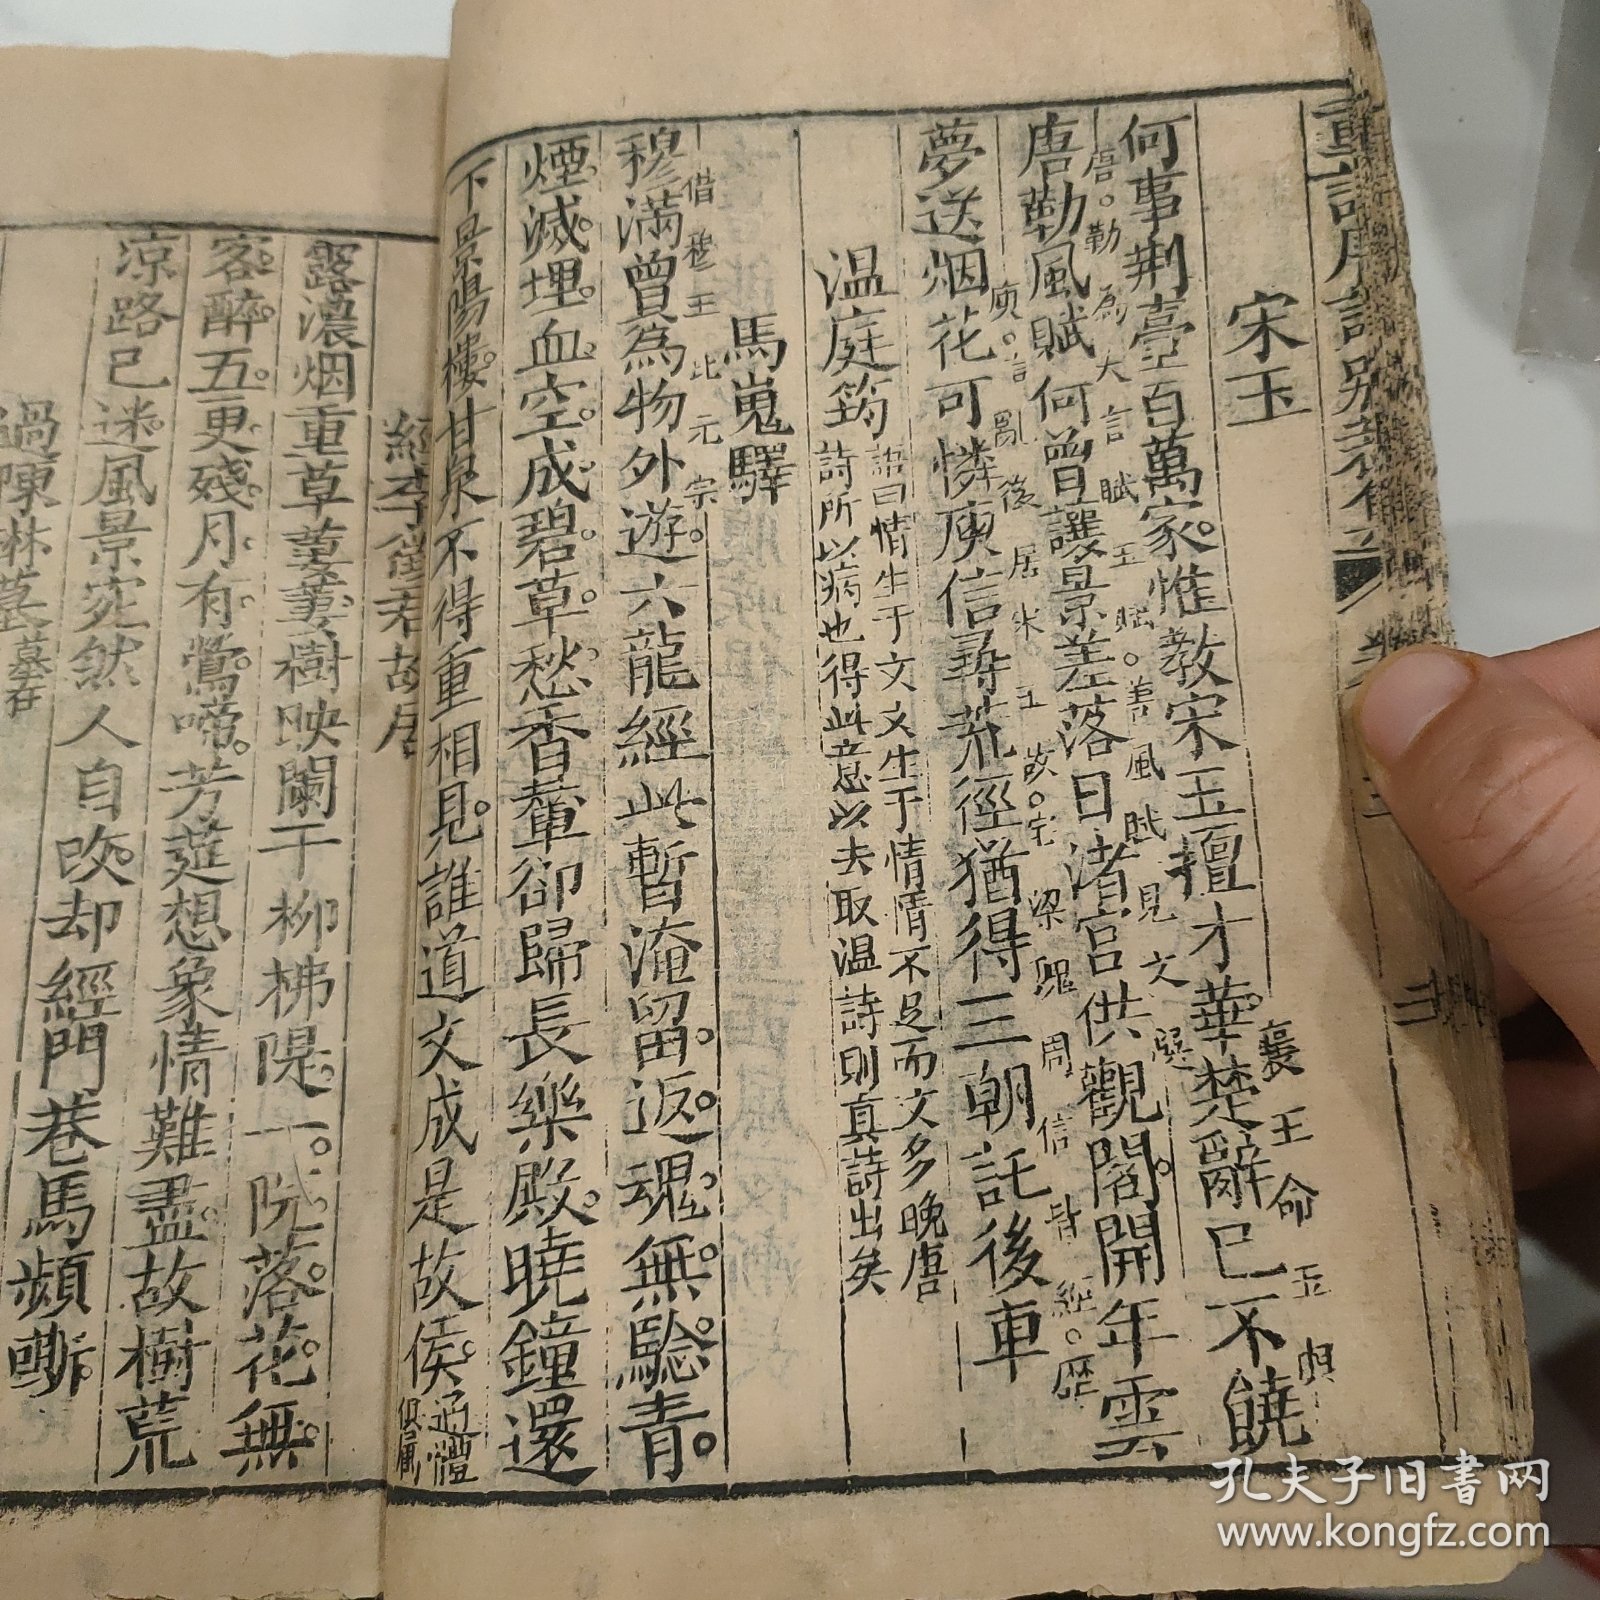 重訂唐詩別裁集
宋玉
何事荆臺百萬家惟教宋玉擅才華楚辭已不饒
襄王命玉
唐勒為大言賦玉賦。善風賦見文
唐勒風賦何曾讓景差落日渚宮供觀閣開年雲
庾。後居宋玉故。宋梁周信皆經。歷
夢送烟花可憐庾信尋荒徑猶得三朝託後車
温庭筠
語曰情生于文文生于情情不足而文多晚唐
詩所以病也得此意以去取温詩則真詩出矣
馬嵬驛
借穆王比元宗。
穆滿曾為物外遊六龍經此暫淹留。返魂無驗青
煙滅埋血空成碧草愁香輦卻歸長樂殿曉鐘還
下景陽樓甘泉不得重相見誰道文成是故侯
通體
俱屬
經李徵君故居
露濃烟重草萋萋樹映闌干柳拂隄一院落花無
客醉五更殘月有鶯啼芳筵想象情難盡故樹荒
涼路已迷風景宛然人自改却經門巷馬頻嘶
過陳琳墓
墓在
孔夫子旧书网
www.kongfz.com